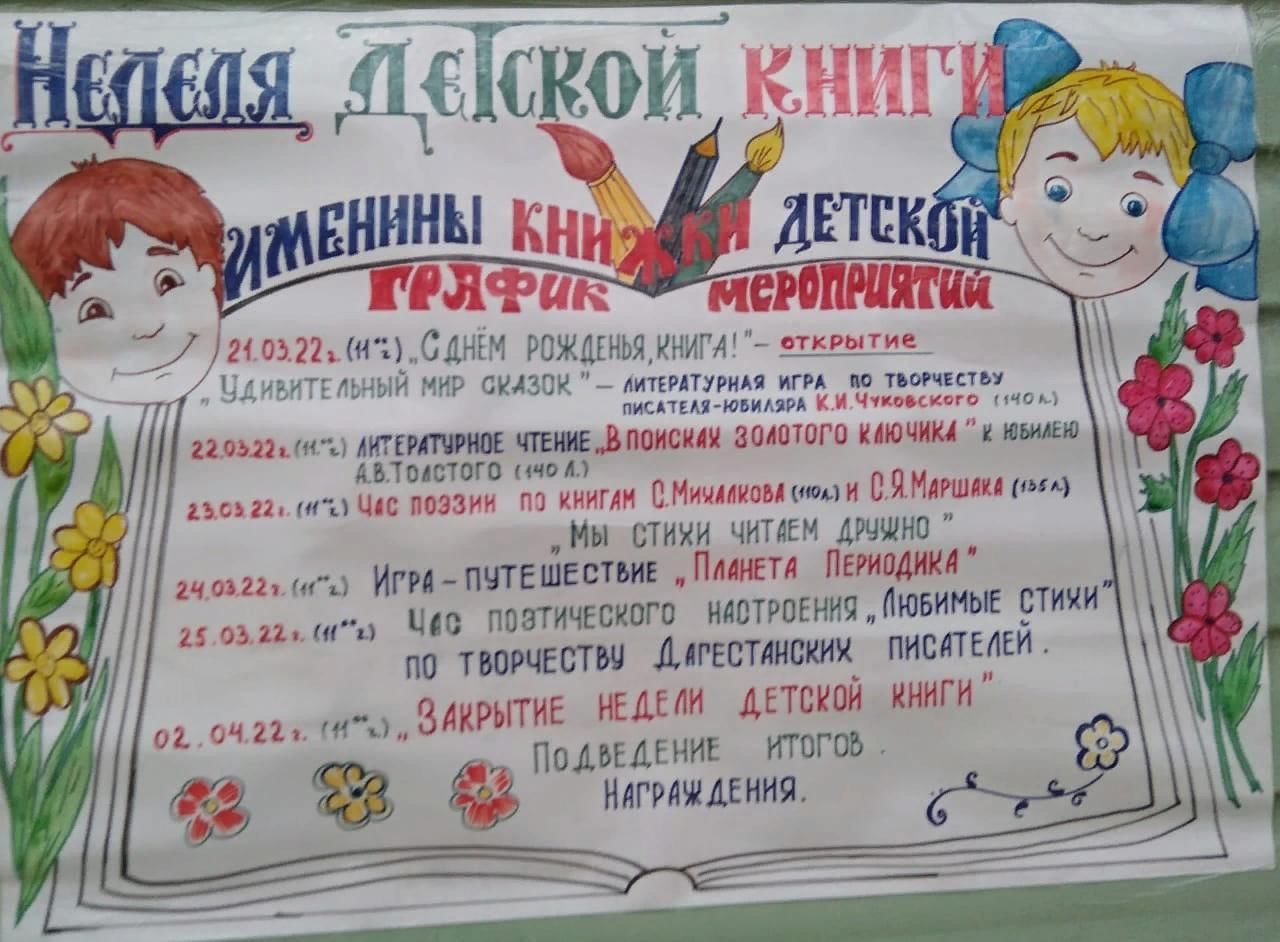 Неделя детской книги
Именины книжки детской
График мероприятий
21.03.22г. (11⁰⁰ч) „С днём рожденья, книга!" – открытие
„Удивительный мир сказок" – литературная игра по творчеству
писателя-юбиляра К.И.Чуковского (140 л.)
22.03.22г. (11⁰⁰ч) литературное чтение „В поисках золотого ключика" к юбилею
А.В.Толстого (140 л.)
23.03.22г. (11⁰⁰ч) Час поэзии по книгам С.Михалкова (110л.) и С.Я.Маршака (135л.)
„Мы стихи читаем дружно"
24.03.22г. (11⁰⁰ч) Игра – путешествие „Планета Периодика"
25.03.22г. (11⁰⁰ч) Час поэтического настроения „Любимые стихи"
по творчеству Дагестанских писателей.
02.04.22г. (11⁰⁰ч) „Закрытие недели детской книги"
Подведение итогов.
Награждения.